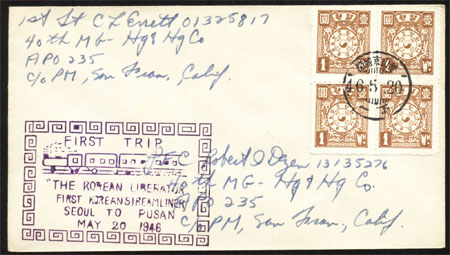 1st Lt C L Emett 01325817
40th MG- Hq & Hq Co
APO 235
c/o PM, San Fran, Calif.
1 Wn 1 Wn
1 Wn 1 Wn
46.5.20
FIRST TRIP
"THE KOREAN LIBERATOR"
FIRST KOREAN STREAMLINER
SEOUL TO PUSAN
MAY 20 1946
Robert D 13135276
MG- Hq & Hq Co.
APO 235
c/o PM, San Fran, Calif.